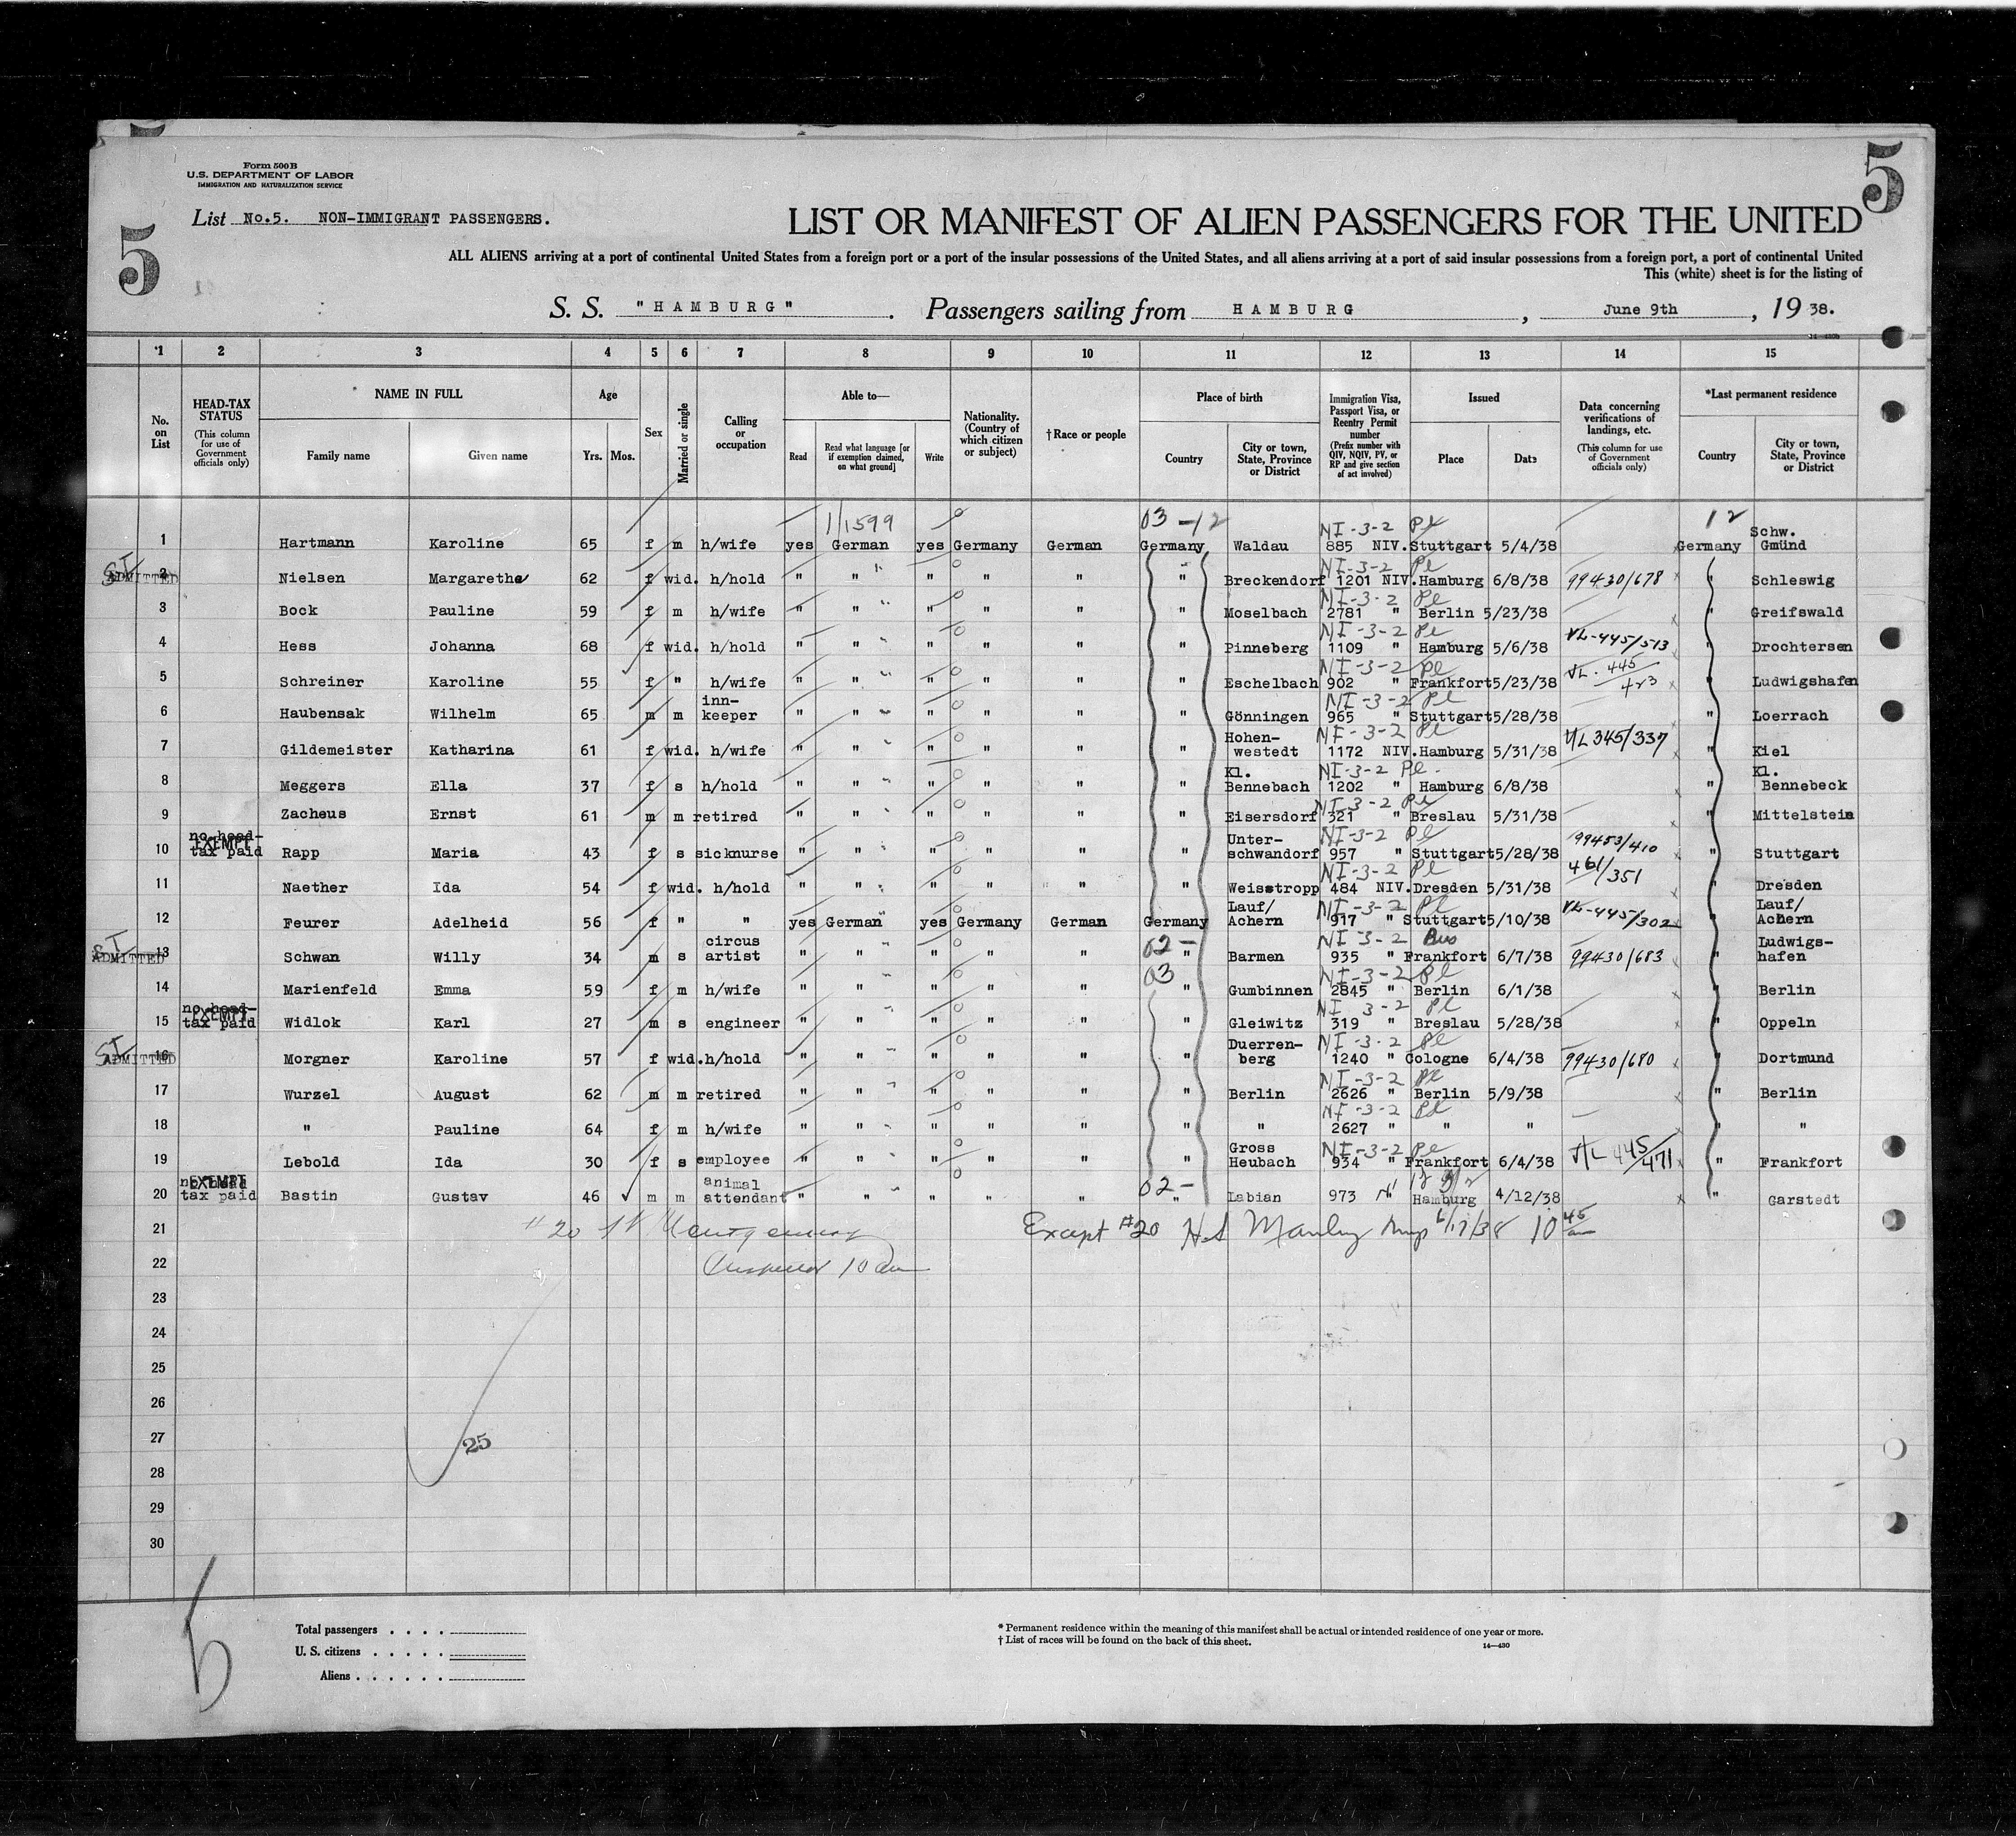 5
5
5
Form 500B
U.S. DEPARTMENT OF LABOR
IMMIGRATION AND NATURALIZATION SERVICE
List No.5. NON-IMMIGRANT PASSENGERS.
LIST OR MANIFEST OF ALIEN PASSENGERS FOR THE UNITED
ALL ALIENS arriving at a port of continental United States from a foreign port or a port of the insular possessions of the United States, and all aliens arriving at a port of said insular possessions from a foreign port, a port of continental United
This (white) sheet is for the listing of
S. S. "HAMBURG". Passengers sailing from HAMBURG, June 9th, 19 38.
*1 2 3 4 5 6 7 8 9 10 11 12 13 14 15
No. on List
HEAD-TAX STATUS (This column for use of Government officials only)
NAME IN FULL Family name Given name
Age Yrs. Mos.
Sex
Married or single
Calling or occupation
Able to— Read Read what language [or if exemption claimed, on what ground] Write
Nationality. (Country of which citizen or subject)
†Race or people
Place of birth Country City or town, State, Province or District
Immigration Visa, Passport Visa, or Reentry Permit number (Prefix number with QIV, NQIV, PV, or RP and give section of act involved)
Issued Place Date
Data concerning verifications of landings, etc. (This column for use of Government officials only)
*Last permanent residence Country City or town, State, Province or District
1/1599 03 -12 NI-3-2 Pl 12
1 Hartmann Karoline 65 f m h/wife yes German yes Germany German Germany Waldau 885 NIV. Stuttgart 5/4/38 Germany Schw. Gmünd
NI-3-2 Pl
SI ADMITTED 2 Nielsen Margarethe 62 f wid. h/hold " " " " " " Breckendorf 1201 NIV. Hamburg 6/8/38 99430/678 " Schleswig
NI-3-2 Pl
3 Bock Pauline 59 f m h/wife " " " " " " Moselbach 2781 " Berlin 5/23/38 " Greifswald
NI-3-2 Pl
4 Hess Johanna 68 f wid. h/hold " " " " " " Pinneberg 1109 " Hamburg 5/6/38 VL-445/513 " Drochtersen
NI-3-2 Pl
5 Schreiner Karoline 55 f " h/wife " " " " " " Eschelbach 902 " Frankfort 5/23/38 VL-445/423 " Ludwigshafen
NI-3-2 Pl
6 Haubensak Wilhelm 65 m m inn-keeper " " " " " " Gönningen 965 " Stuttgart 5/28/38 " Loerrach
NI-3-2 Pl
7 Gildemeister Katharina 61 f wid. h/wife " " " " " " Hohen-westedt 1172 NIV. Hamburg 5/31/38 VL 345/337 " Kiel
NI-3-2 Pl
8 Meggers Ella 37 f s h/hold " " " " " " Kl. Bennebach 1202 " Hamburg 6/8/38 " Kl. Bennebeck
NI-3-2 Pl
9 Zacheus Ernst 61 m m retired " " " " " " Eisersdorf 321 " Breslau 5/31/38 " Mittelstein
NI-3-2 Pl
10 no head-tax paid EXEMPT Rapp Maria 43 f s sicknurse " " " " " " Unter-schwandorf 957 " Stuttgart 5/28/38 99453/410 " Stuttgart
NI-3-2 Pl
11 Naether Ida 54 f wid. h/hold " " " " " " Weisstropp 484 NIV. Dresden 5/31/38 461/351 " Dresden
NI-3-2 Pl
12 Feurer Adelheid 56 f " " yes German yes Germany German Germany Lauf/Achern 917 " Stuttgart 5/10/38 VL-445/302 " Lauf/Achern
02- NI-3-2 Bus
SI ADMITTED 13 Schwan Willy 34 m s circus artist " " " " " " Barmen 935 " Frankfort 6/7/38 99430/683 " Ludwigs-hafen
03 NI-3-2 Pl
14 Marienfeld Emma 59 f m h/wife " " " " " " Gumbinnen 2845 " Berlin 6/1/38 " Berlin
NI 3-2 Pl
15 no head-tax paid EXEMPT Widlok Karl 27 m s engineer " " " " " " Gleiwitz 319 " Breslau 5/28/38 " Oppeln
NI-3-2 Pl
SI ADMITTED 16 Morgner Karoline 57 f wid. h/hold " " " " " " Duerren-berg 1240 " Cologne 6/4/38 99430/680 " Dortmund
NI-3-2 Pl
17 Wurzel August 62 m m retired " " " " " " Berlin 2626 " Berlin 5/9/38 " Berlin
NI-3-2 Pl
18 " Pauline 64 f m h/wife " " " " " " " 2627 " " " " "
NI-3-2 Pl
19 Lebold Ida 30 f s employee " " " " " " Gross Heubach 934 " Frankfort 6/4/38 VL 445/471 " Frankfort
02-
20 no head tax paid EXEMPT Bastin Gustav 46 m m animal attendant " " " " " " Labian 973 " Hamburg 4/12/38 " Garstedt
21 #20 Montgomery Except #20 H.S. Manley Insp 6/17/38 10 45 am
22 Inspector 10 am
23
24
25
26
27 25
28
29
30
5
Total passengers
U. S. citizens
Aliens
* Permanent residence within the meaning of this manifest shall be actual or intended residence of one year or more.
† List of races will be found on the back of this sheet.
14—430